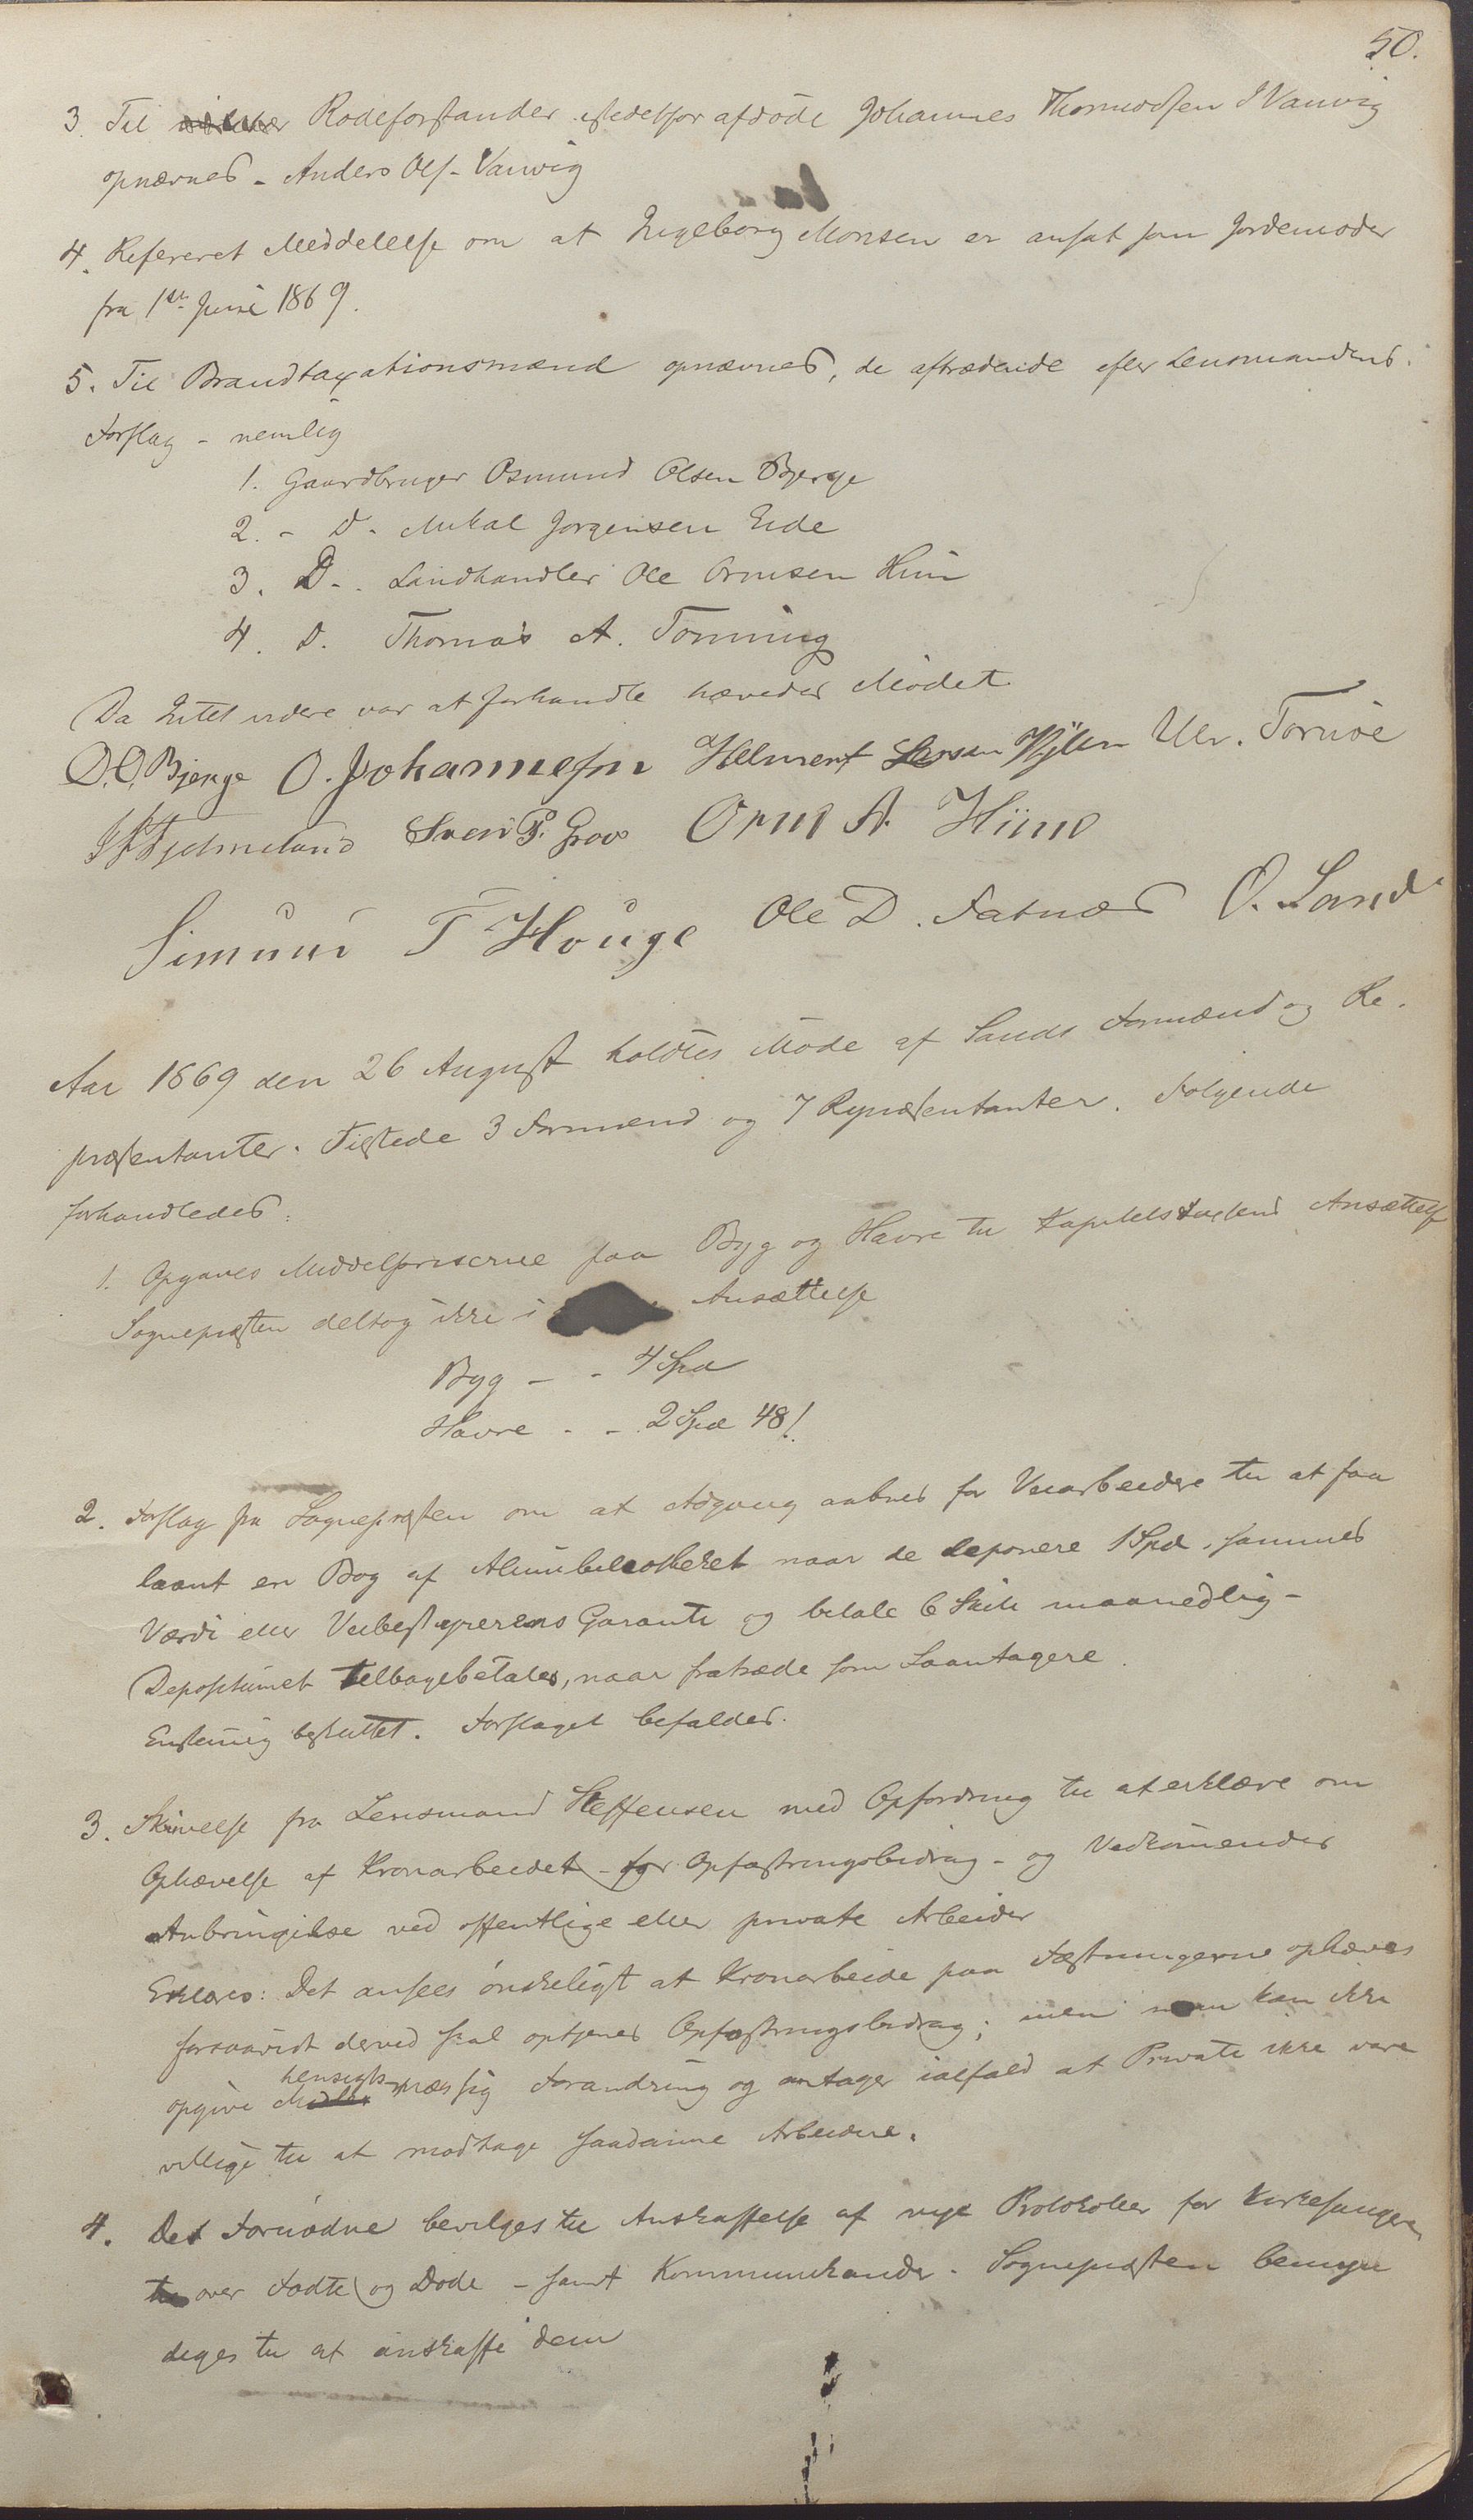 50.
3. Til Rodeforstander istedetfor afdøde Johannes Thormodsen I Vanvig
opnævnes - Anders Ols. Vanvig
4. Refereret Meddelelse om at Ingeborg Monsen er ansat som Jordemoder
fra 1ste Juni 1869.
5. Til Brandtaxationsmænd opnævnes, de aftrædende efter Lensmandens
Forslag - nemlig
1. Gaardbruger Osmund Olsen Bjerge
2. - D - Mikal Jørgensen Eide
3. D - Landhandler Ole Ormsen Hiim
4. D. Thomas A. Tonning
Da Intet videre var at forhandle hævedes Mødet
O. O. Bjerge O. Johannesen Helmert Larsen Ulr. Tornøe
Hjelmeland Sven P. Grov Orm A. Hiim
Simun T Høuge Ole D. Fatnæs O. Sand
Aar 1869 den 26 August holdtes Møde af Sands Formænd og Re-
præsentanter. Tilstede 3 Formænd og 7 Repræsentanter. Følgende
forhandledes:
1. Opgaves Middelpriserne paa Byg og Havre til Kapitelstaxtens Ansættelse
Sognepræsten deltog ikke i Ansættelse
Byg - - 4 Spd
Havre - - 2 Spd 48 !
2. Forslag fra Sognepræsten om at Adgang aabnes for Veiarbeidere til at faa
laant en Bog af Almuebibliotheket naar de deponere 1 Spd, sammes
Værdi eller Veibestyrerens Garanti og betale 6 Skill maanedlig -
Depositumet tilbagebetales, naar fratræde som Laantagere.
Enstemig besluttet. Forslaget bifaldes.
3. Skrivelse fra Lensmand Steffensen med Opfordring til at erklære om
Ophævelse af Kronarbeidet - for Opfostringsbidrag - og Vedkommendes
Anbringelse ved offentlige eller private Arbeider
Erklæres: Det ansees ønskeligt at Kronarbeide paa Fæstningerne ophæves
forsaavidt derved skal optjenes Opfostringsbidrag; men man kan ikke
opgive hensigtsmæssig Forandring og antager ialfald at Private ikke være
villige til at modtage saadanne Arbeidere.
4. Det Fornødne bevilges til Anskaffelse af nye Protokoller for Kirkesangere
over Fødte og Døde - samt Kommunikander. Sognepræsten bemyn
diges til at anskaffe dem